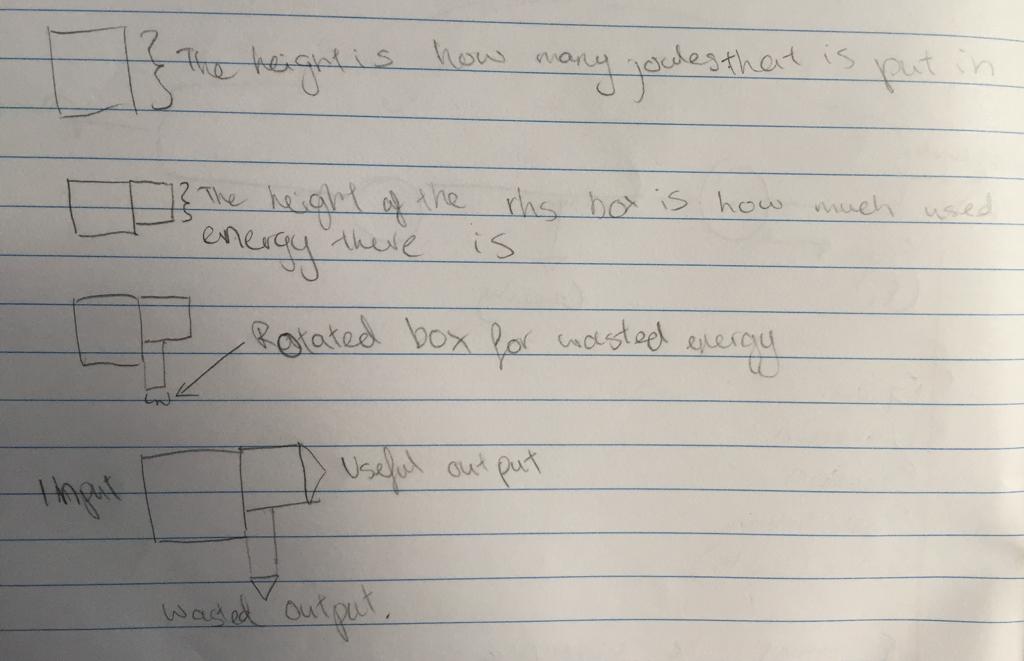 The height is how many joules that is put in
The height of the rhs box is how much used
energy there is
Rotated box for wasted energy
Input
Useful output
Wasted output.